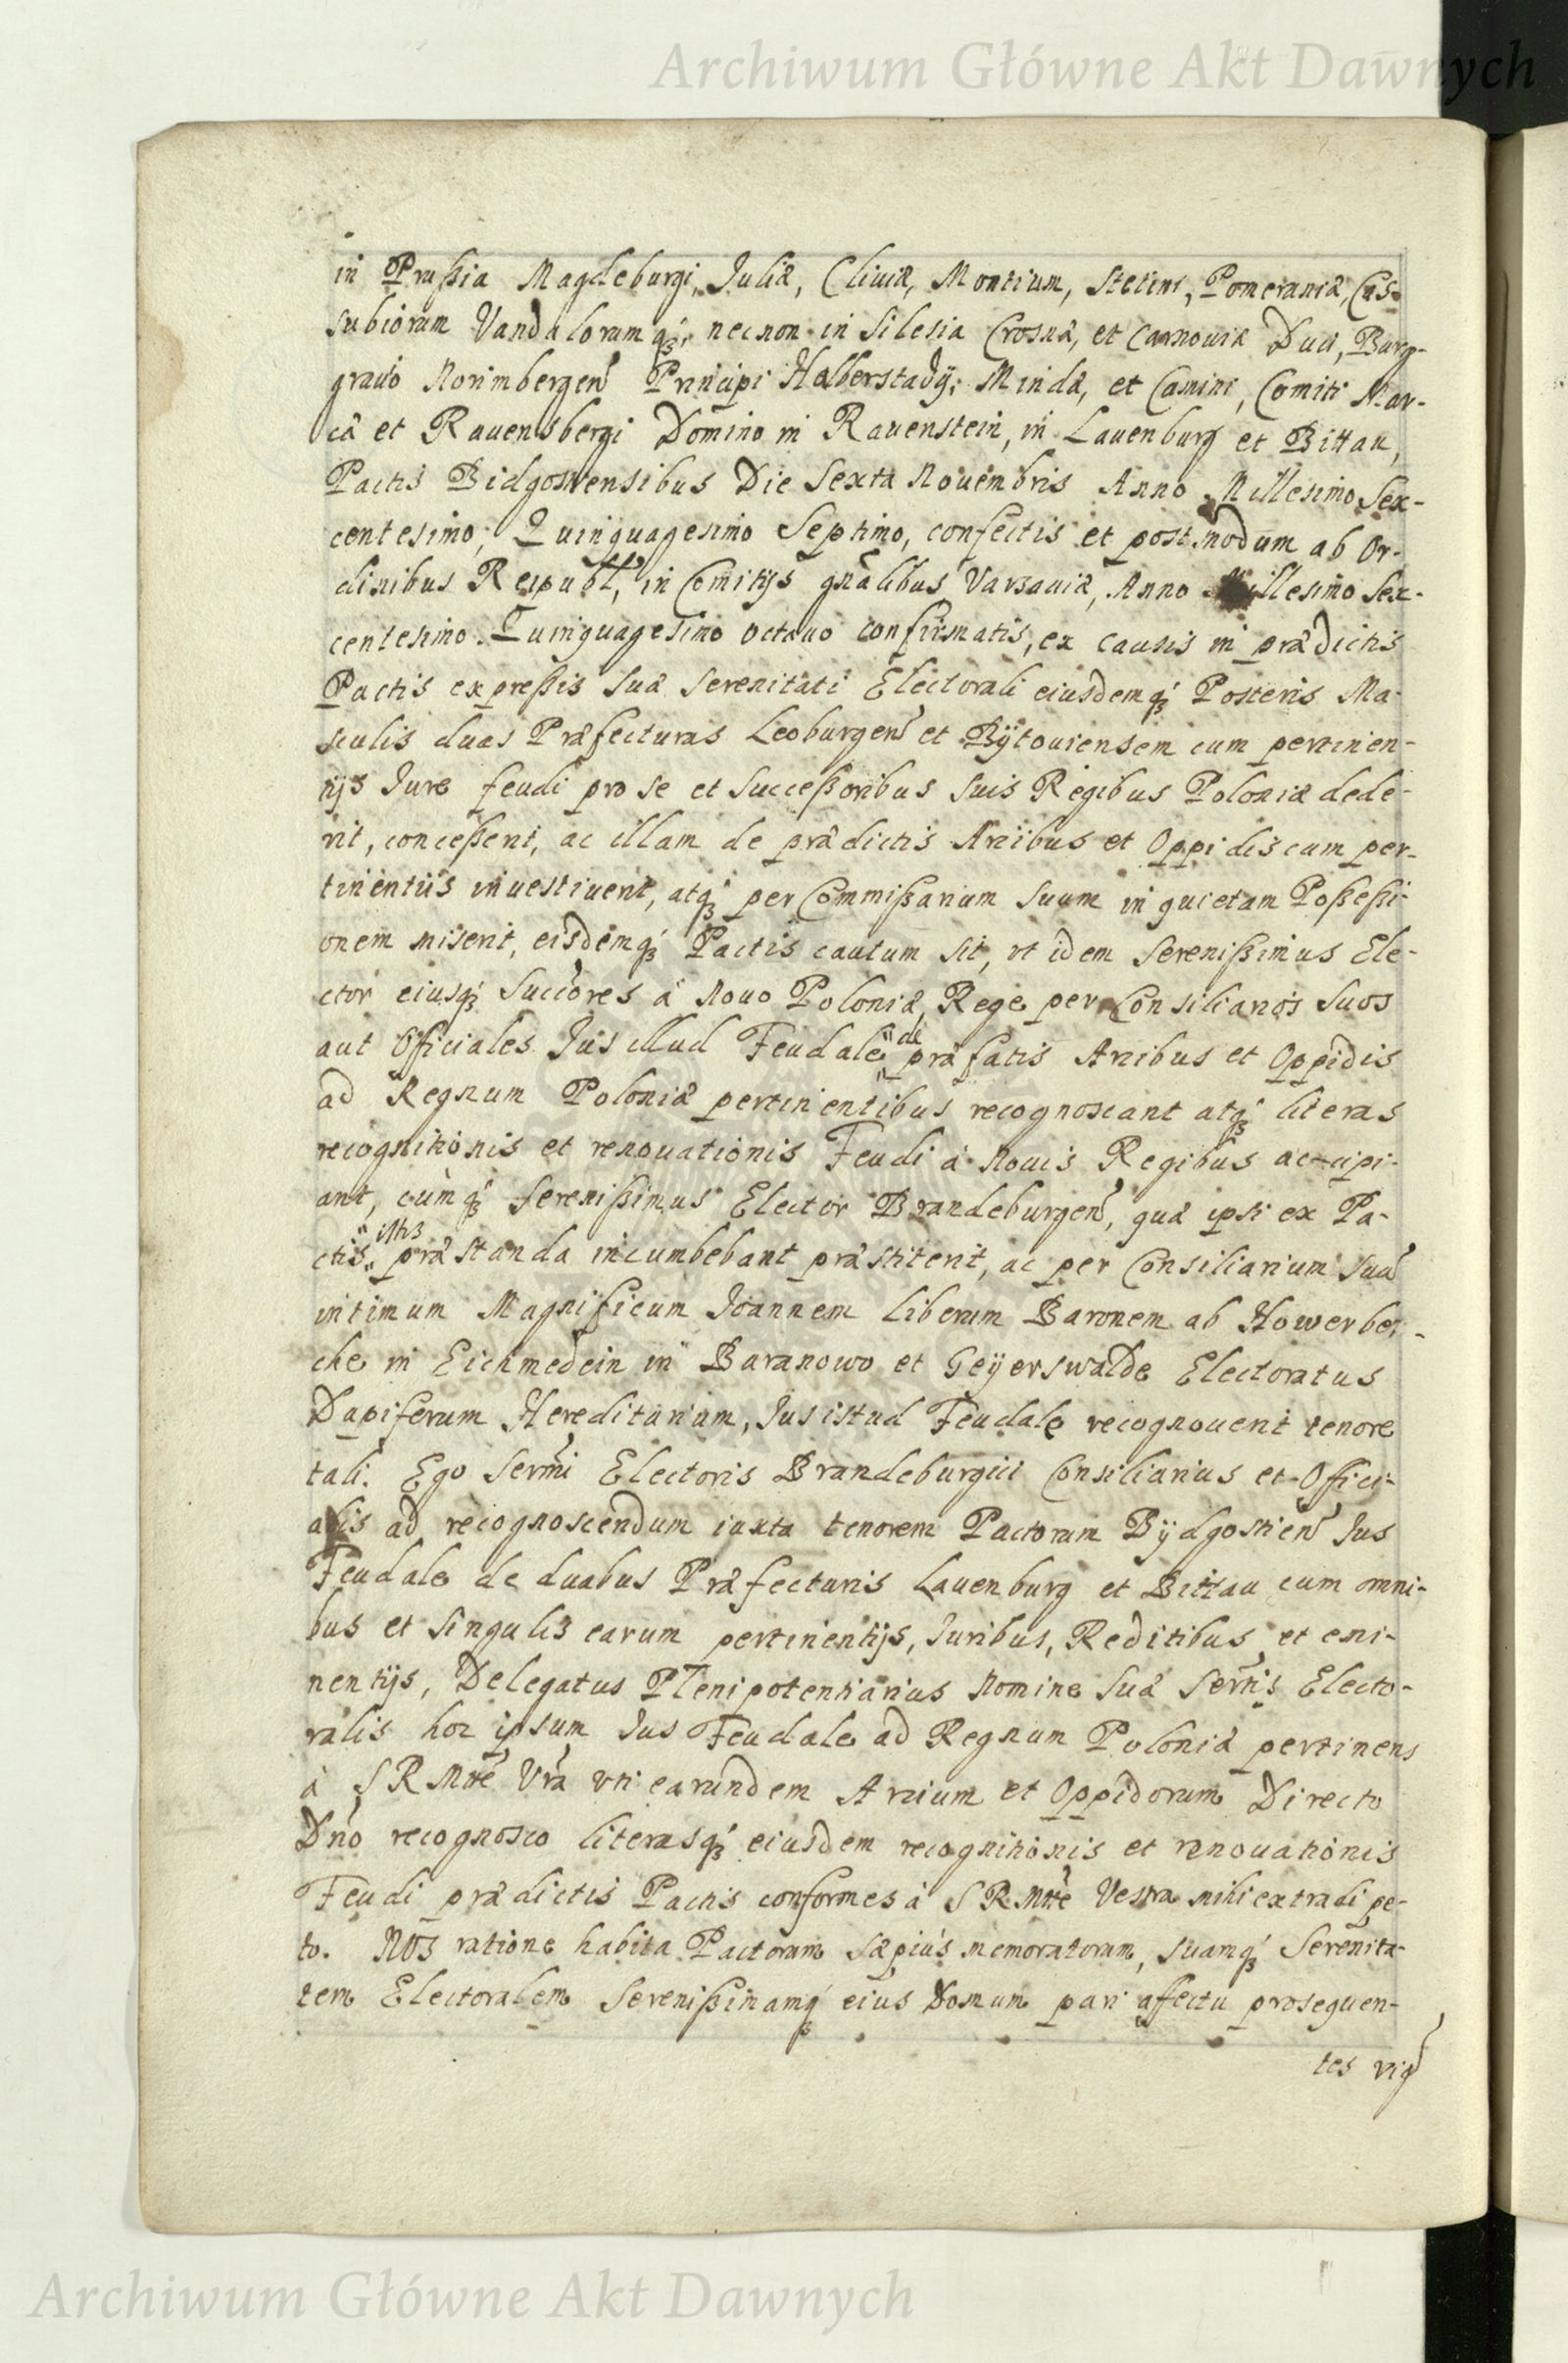 Archiwum Główne Akt Dawnych
in Prußia Magdeburgi, Juliæ, Cliuiæ, Montium, Stetini, Pomeraniæ, Cas-
subiorum Vandalorumq́ꝫ, necnon in Silesia Crosnæ, et Carnouiæ Duci, Burg-
grauio Norimbergen̄ Principi Halberstadij, Mindæ, et Camini, Comiti Mar-
cæ et Rauensbergi Domino in Rauenstein, in Lauenburg et Bittau,
Pactis Bidgostiensibus Die Sexta Nouembris Anno Millesimo Sex-
centesimo, Quinquagesimo Septimo, confectis et postmodum ab Or-
dinibus Reipubl, in Comitijs gn̄alibus Varsauiæ, Anno Millesimo Sex-
centesimo Quinquagesimo octauo confirmatis, ex causis in prædictis
Pactis expreßis Suæ Serenitati Electorali eiusdemq́ꝫ Posteris Ma-
sculis duas Præfecturas Leoburgen̄ et Bÿtouiensem cum pertinen-
tijs Jure feudi pro se et Succeßoribus Suis Regibus Poloniæ dede-
rit, conceßerit, ac illam de prædictis Arcibus et Oppidis cum per-
tinentiis inuestiuerit, atq́ꝫ per Commißarium Suum in quietam Poßeßi-
onem miserit, eisdemq́ꝫ Pactis cautum sit, vt idem Serenißimus Ele-
ctor eiusq́ꝫ Succ̄ores à Nouo Poloniæ Rege per Consiliarios Suos
aut Officiales Jus illud Feudale de præfatis Arcibus et Oppidis
ad Regnum Poloniæ pertinentibus recognoscant atq́ꝫ literas
recognitionis et renouationis Feudi à Nouis Regibus accipi-
ant, cùmq́ꝫ Serenißimus Elector Brandeburgen̄, quæ ipsi ex Pa-
ctis istis præstanda incumbebant præstiterit, ac per Consiliarium Suū
intimum Magnificum Joannem Liberum Baronem ab Howerbe-
che in Eichmedein in Baranowo et Geÿerswalde Electoratus
Dapiferum Hereditarium, Jus istud Feudale recognouerit tenore
tali. Ego Serm̄i Electoris Brandeburgici Consiliarius et Offici-
alis ad recognoscendum iuxta tenorem Pactorum Bÿdgostien̄ Jus
Feudale de duabus Præfecturis Lauenburg et Bittau cum omni-
bus et Singulis earum pertinentijs, Juribus, Reditibus et emi-
nentijs, Delegatus Plenipotentiarius Nomine Suæ Serrn̄is Electo-
ralis hoc ipsum Jus Feudale ad Regnum Poloniæ pertinens
à S R Mtt̄e Vrā vti earundem Arcium et Oppidorum Directo
Dn̄o recognosco literasq́ꝫ eiusdem recognitionis et renouationis
Feudi prædictis Pactis conformes à S R Mtt̄e Vestra mihi extradi pe-
to. NOS ratione habita Pactorum sæpius memoratorum, suamq́ꝫ Serenita-
tem Electoralem Serenißimamq́ꝫ eius Domum pari affectu prosequen-
tes
Archiwum Główne Akt Dawnych